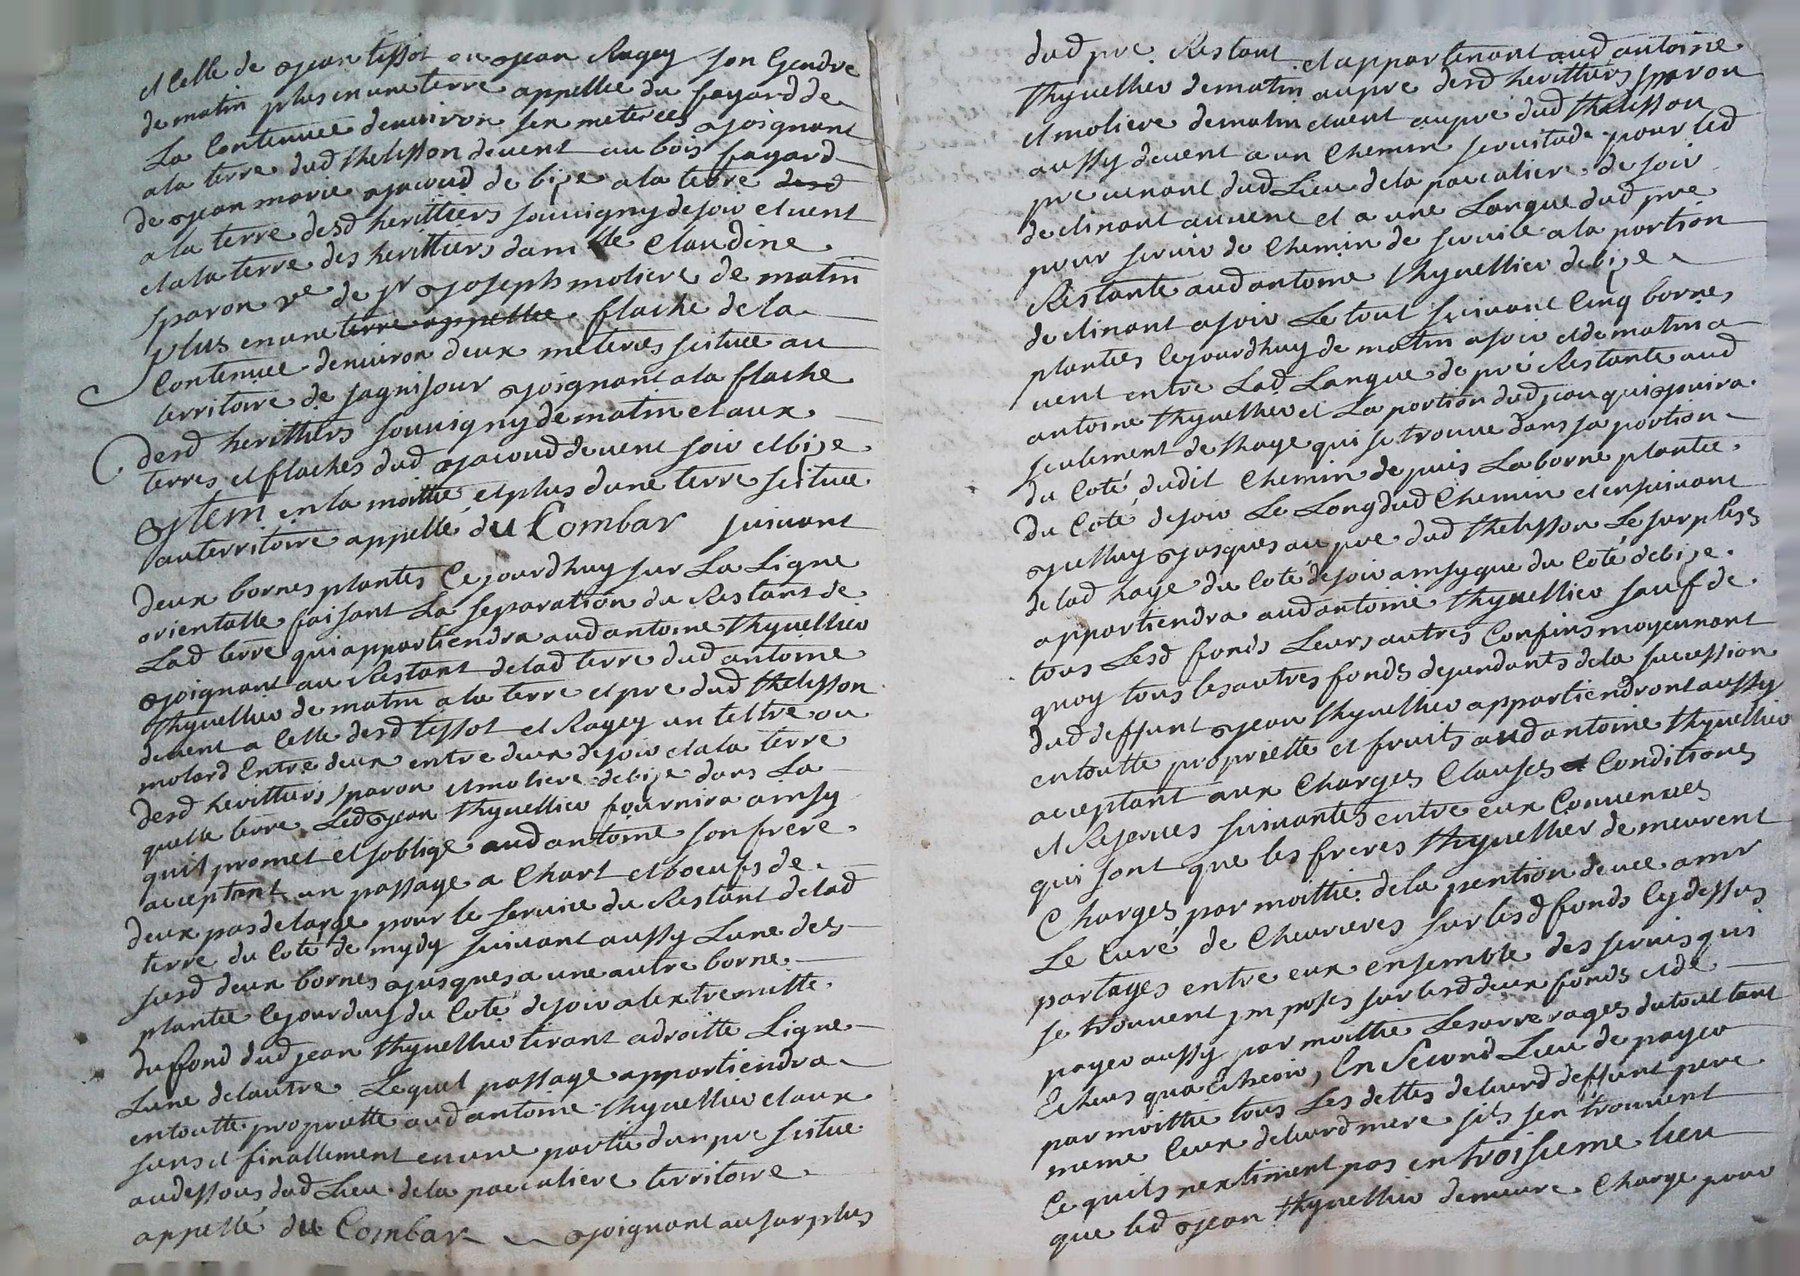 et celle de Jean tissot et Jean Ragey son Gendre
de matin plus en une terre appellée du fayard de
La Contenue denviron six meterées Joignant
a la terre dud thelisson de vent au bois fayard
de Jean marie Jacoud de bize a la terre desd
a la terre desd heritiers souvigny de soir et vent
et a la terre des heritiers dam lle Claudine
sparon ve de sr Joseph moliere de matin
plus en une terre appellée flache de la
Contenue denviron deux meterées scituée au
territoire de Jagnijour Joignant a la flache
desd herittiers souvigny de matin et aux
terres et flaches dud Jacoud de vent soir et bize
Item en la moittié et plus dune terre scituée
au territoire appellé du Combar suivant
deux bornes plantés Cejourdhuy sur La Ligne
orientalle faisant La separation du Restant de
Lad terre qui appartiendra aud antoine thynellier
Joignant au Restant de lad terre dud antoine
thynellier de matin a la terre et pre dud thelisson
de vent a Celle desd tissot et Ragey un tertre ou
molard Entre deux entre deux de soir et a la terre
desd herittiers sparon et moliere de bize dans La
quelle terre Led Jean thynellier fournira ainsy
quil promet et soblige aud antoine son frere
acceptant un passage a Chart et boeufs de
deux pas de large pour le service du Restant de lad
terre du Coté de mydy suivant aussy Lune des
susd deux bornes Jusques a une autre borne
plantée Cejourdhuy du Coté de soir a lextremitte
du fond dud jean thynellier tirant a droitte Ligne
Lune de lautre Lequel passage appartiendra
en toutte proprietté aud antoine thynellier et aux
siens et finallement en une partie dun pre scitué
au dessous dud Lieu de la pacaliere territoire
appellé du Combar Joignant au surplus
dud pre Restant et appartenant aud antoine
thynellier de matin au pre desd herittiers sparon
et moliere de matin et vent au pre dud thelisson
aussy de vent a un Chemin servitude pour led
pre venant dud Lieu de la pacaliere de soir
declinant au vent et a une Langue dud pre
pour servir de Chemin de service a la portion
Restante aud antoine thynellier de bize
declinant a soir Le tout suivant Cinq bornes
plantées Cejourdhuy de matin a soir et de matin a
vent entre Lad Langue de pré Restante aud
antoine thynellier et La portion dud jean qui jouira
seulement de lhaye qui se trouve dans sa portion
du Coté dudit Chemin depuis La borne plantée
du Coté de soir Le Long dud Chemin et en suivant
Jusques au pre dud thelisson Le surplus
de lad haye du Coté de soir ainsy que du Coté de bize
appartiendra aud antoine thynellier sauf de
tous Lesd fonds Leurs autres Confins moyennant
quoy tous les autres fonds dependants de la succession
dud deffunt Jean thynellier appartiendront aussy
en toutte proprietté et fruits aud antoine thynellier
acceptant aux Charges Clauses et Conditions
et Reserves suivantes entre eux Convenues
qui sont que les freres thynellier demeurent
Chargés par moittié de la pention deüe a mr
Le Curé de Chevrieres sur lesd fonds Cy dessus
partagés entre eux ensemble des servis qui
se trouvent imposés sur lesd deux fonds et de
payer aussy par moittié Les arrerages du tout tant
Echeus qua Echeoir, En Second Lieu de payer
par moittié tous Les dettes de leurd deffunt pere
meme Ceux de leurd mere sils sen trouvent
Ce quils nextiment pas en troisieme lieu
que led Jean thynellier demeure Chargé pour